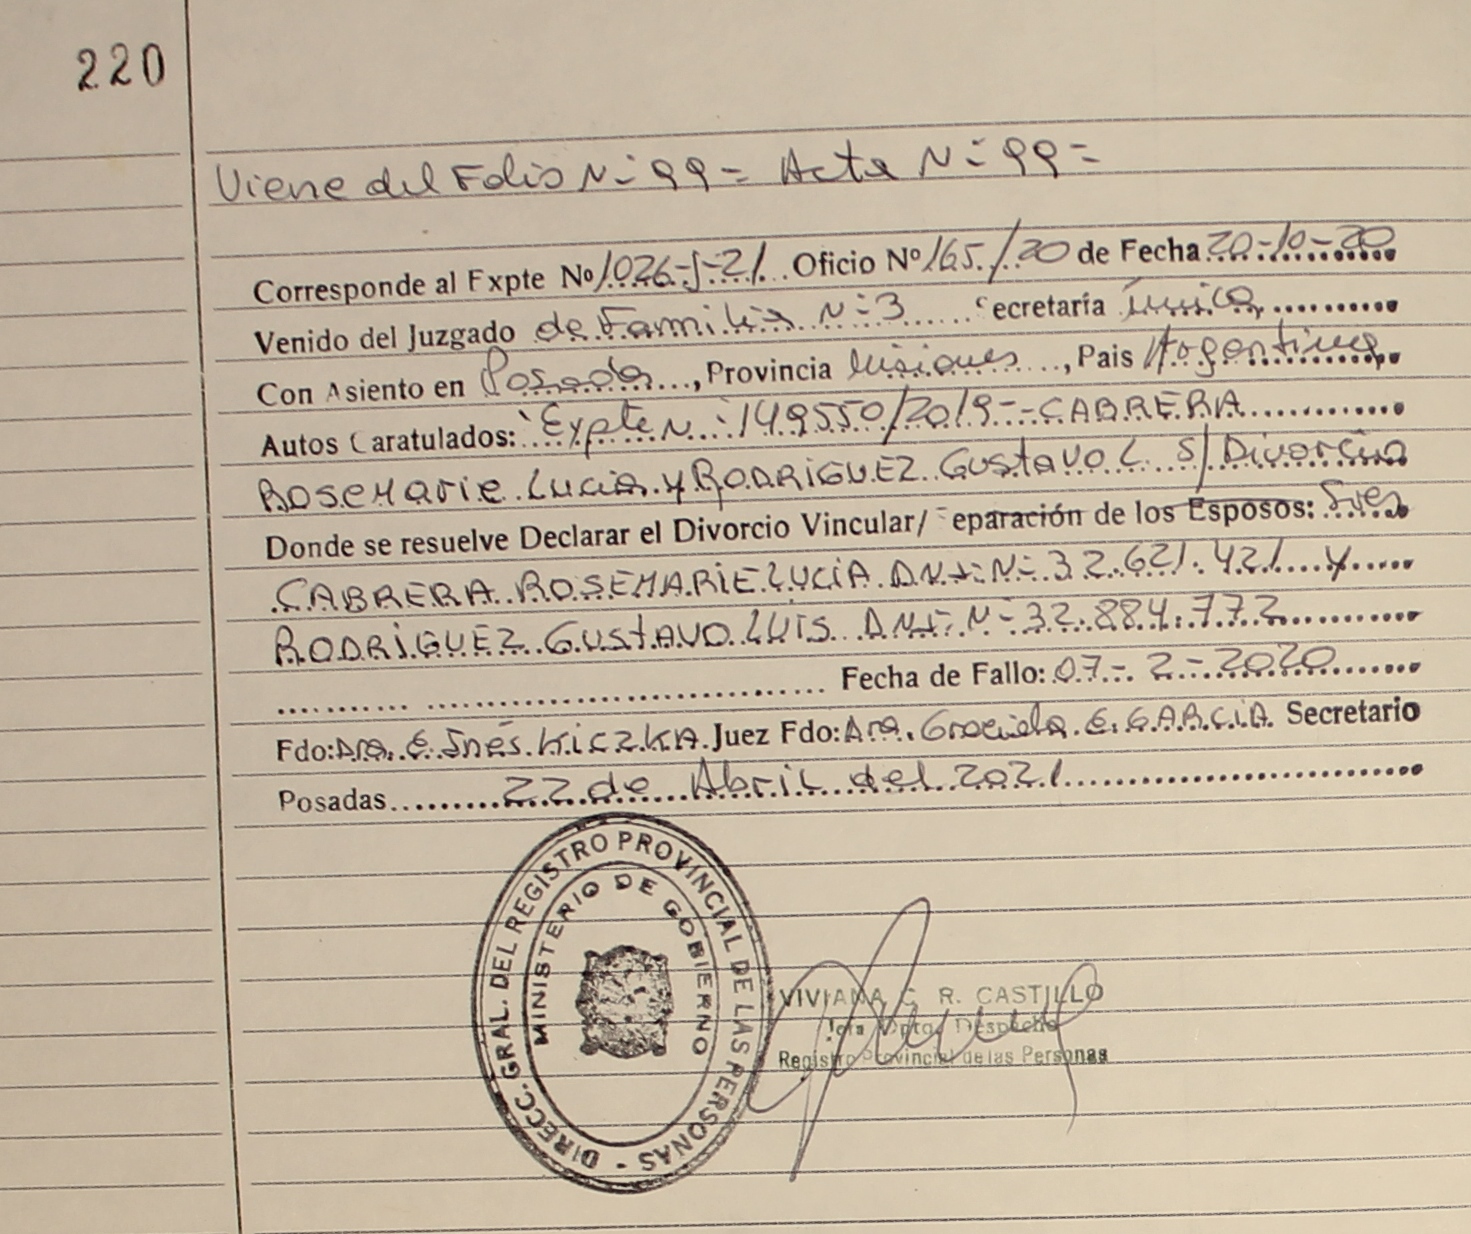 220
Viene del Folio Nº 99 = Acta Nº 99 =
Corresponde al Expte Nº 1026-J-21 Oficio Nº 165/20 de Fecha 20-10-20
Venido del Juzgado de Familia Nº 3 Secretaría única
Con Asiento en Posadas, Provincia Misiones, Pais Argentina
Autos Caratulados: "Expte Nº 149550/2019- CABRERA
ROSEMARIE Lucia y RODRIGUEZ Gustavo L. S/ Divorcio
Donde se resuelve Declarar el Divorcio Vincular/ Separación de los Esposos: Sres
CABRERA ROSEMARIE LUCIA D.N.I. Nº 32.621.421 y
RODRIGUEZ GUSTAVO LUIS D.N.I. Nº 32.884.772
Fecha de Fallo: 07-2-2020
Fdo: Dra. E. Inés KICZKA Juez Fdo: Dra. Graciela E. GARCIA Secretario
Posadas 22 de Abril del 2021
DIRECC. GRAL. DEL REGISTRO PROVINCIAL DE LAS PERSONAS -
MINISTERIO DE GOBIERNO
VIVIANA R. CASTILLO
Dpto. Despacho
Registro Provincial de las Personas